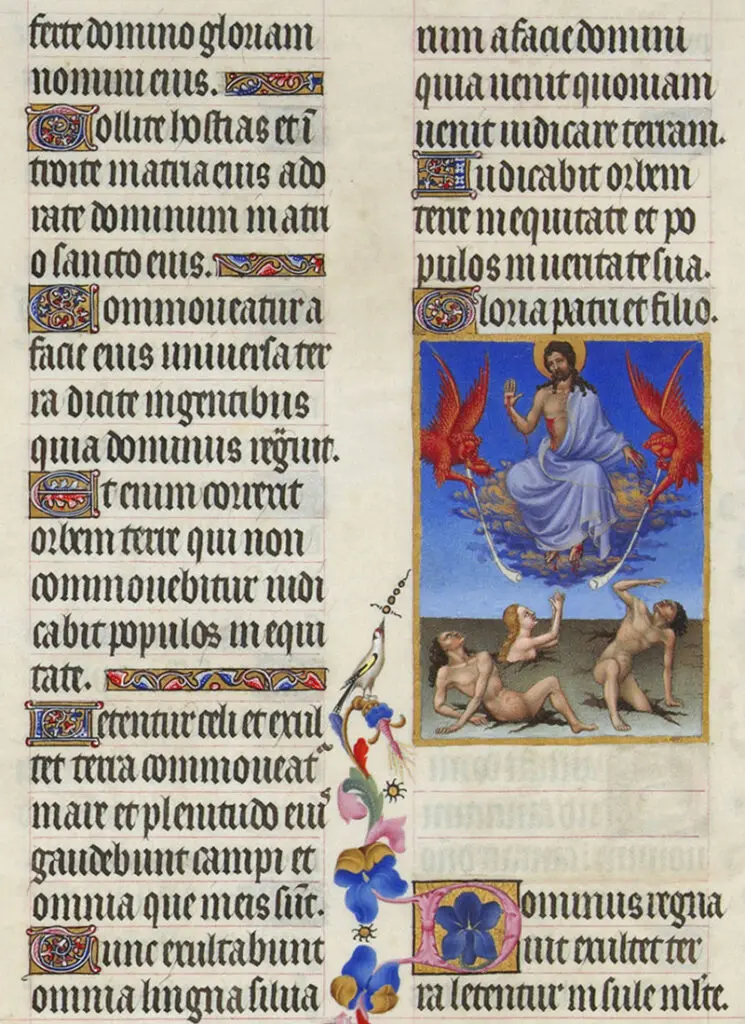 ferte domino gloriam
nomini eius.
Tollite hostias et ī
troite in atria eius ado
rate dominum in atri
o sancto eius.
Commoueatur a
facie eius uniuersa ter
ra dicite in gentibus
quia dominus reg̃uit.
Etenim correxit
orbem terre qui non
commouebitur iudi
cabit populos in equi
tate.
Letentur celi et exul
tet terra commoueat᷑
mare et plenitudo eiꝰ
gaudebunt campi et
omnia que in eis sūt.
Tunc exultabunt
omnia lingna silua
rum a facie domini
quia uenit quoniam
uenit iudicare terram.
Iudicabit orbem
terre in equitate et po
pulos in ueritate sua.
Gloria patri et filio.
Dominus regna
uit exultet ter
ra letentur insule ml̃te.